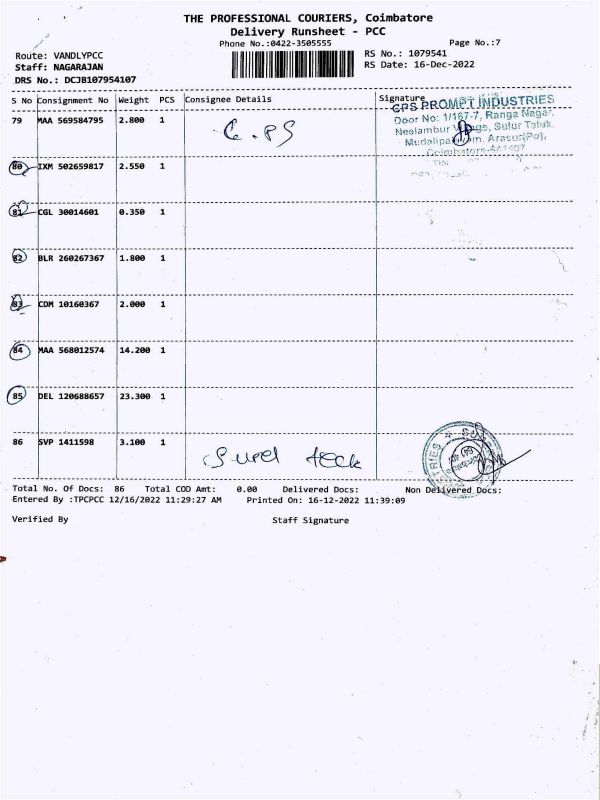 THE PROFESSIONAL COURIERS, Coimbatore
Delivery Runsheet - PCC
Phone No.:0422-3505555
Page No.:7
Route: VANDLYPCC
RS No.: 1079541
Staff: NAGARAJAN
RS Date: 16-Dec-2022
DRS No.: DCJB107954107
S No Consignment No Weight PCS Consignee Details Signature
GPS PROMPT INDUSTRIES
79 MAA 569584795 2.800 1
Door No: 1/167-7, Ranga Nagar,
Neelambur Sulur Taluk,
Arasur(Po),
80 IXM 502659817 2.550 1
81 CGL 30014601 0.350 1
82 BLR 260267367 1.800 1
83 CDM 10160367 2.000 1
84 MAA 568012574 14.200 1
85 DEL 120688657 23.300 1
86 SVP 1411598 3.100 1
Total No. Of Docs: 86 Total COD Amt: 0.00 Delivered Docs: Non Delivered Docs:
Entered By :TPCPCC 12/16/2022 11:29:27 AM Printed On: 16-12-2022 11:39:09
Verified By Staff Signature